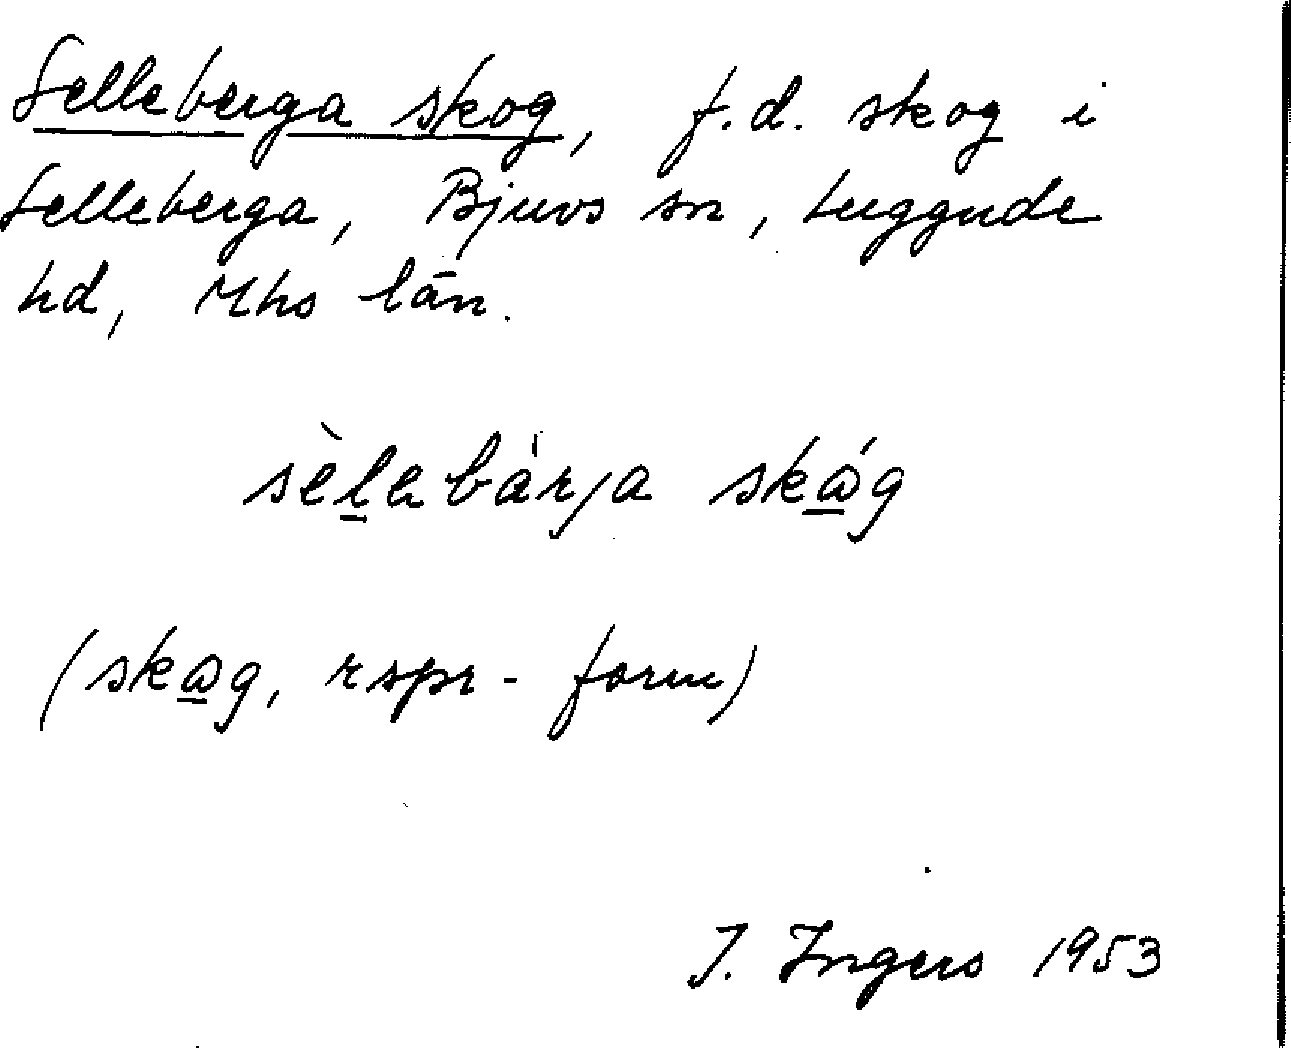 Selleberga skog, f.d. skog i
Selleberga, Bjuvs sn, Luggude
hd, Mhs län.
sèl̲ebàrja sko̲ág
(sko̲ag, rspr-form)
I. Ingers 1953